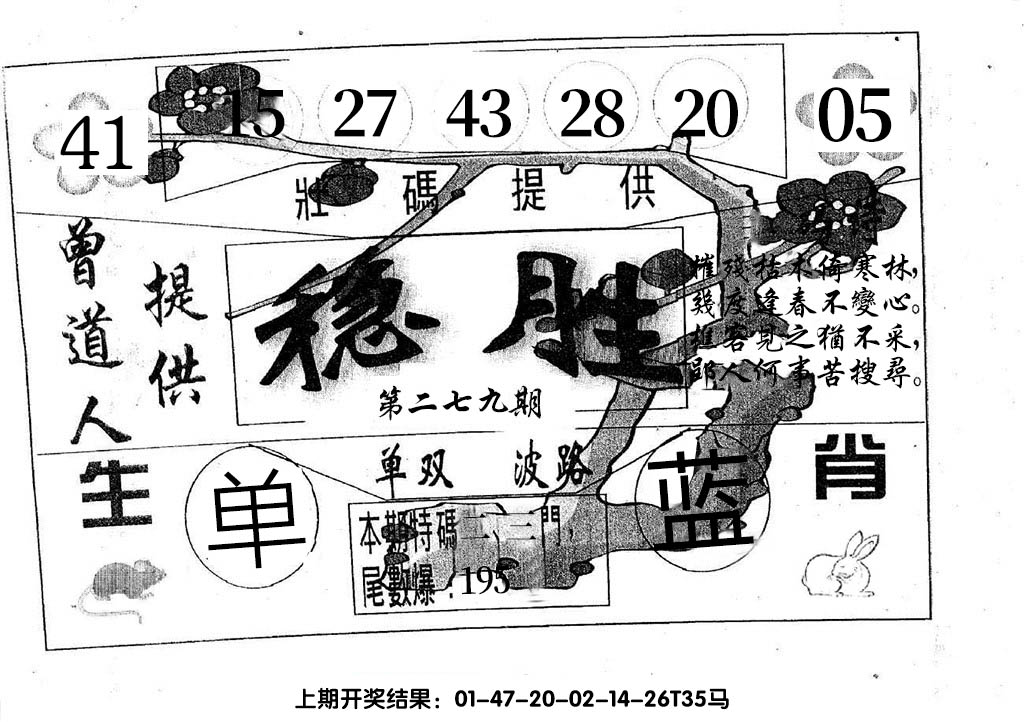 41 15 27 43 28 20 05
壯碼提供
特
曾道人
提供
稳胜
第二七九期
摧殘枯木倚寒林，
幾度逢春不變心。
樵客見之猶不采，
郢人何事苦搜尋。
单双 波路
生肖
单 蓝
本期特碼二、三門，
尾數爆：195
上期开奖结果：01-47-20-02-14-26T35马